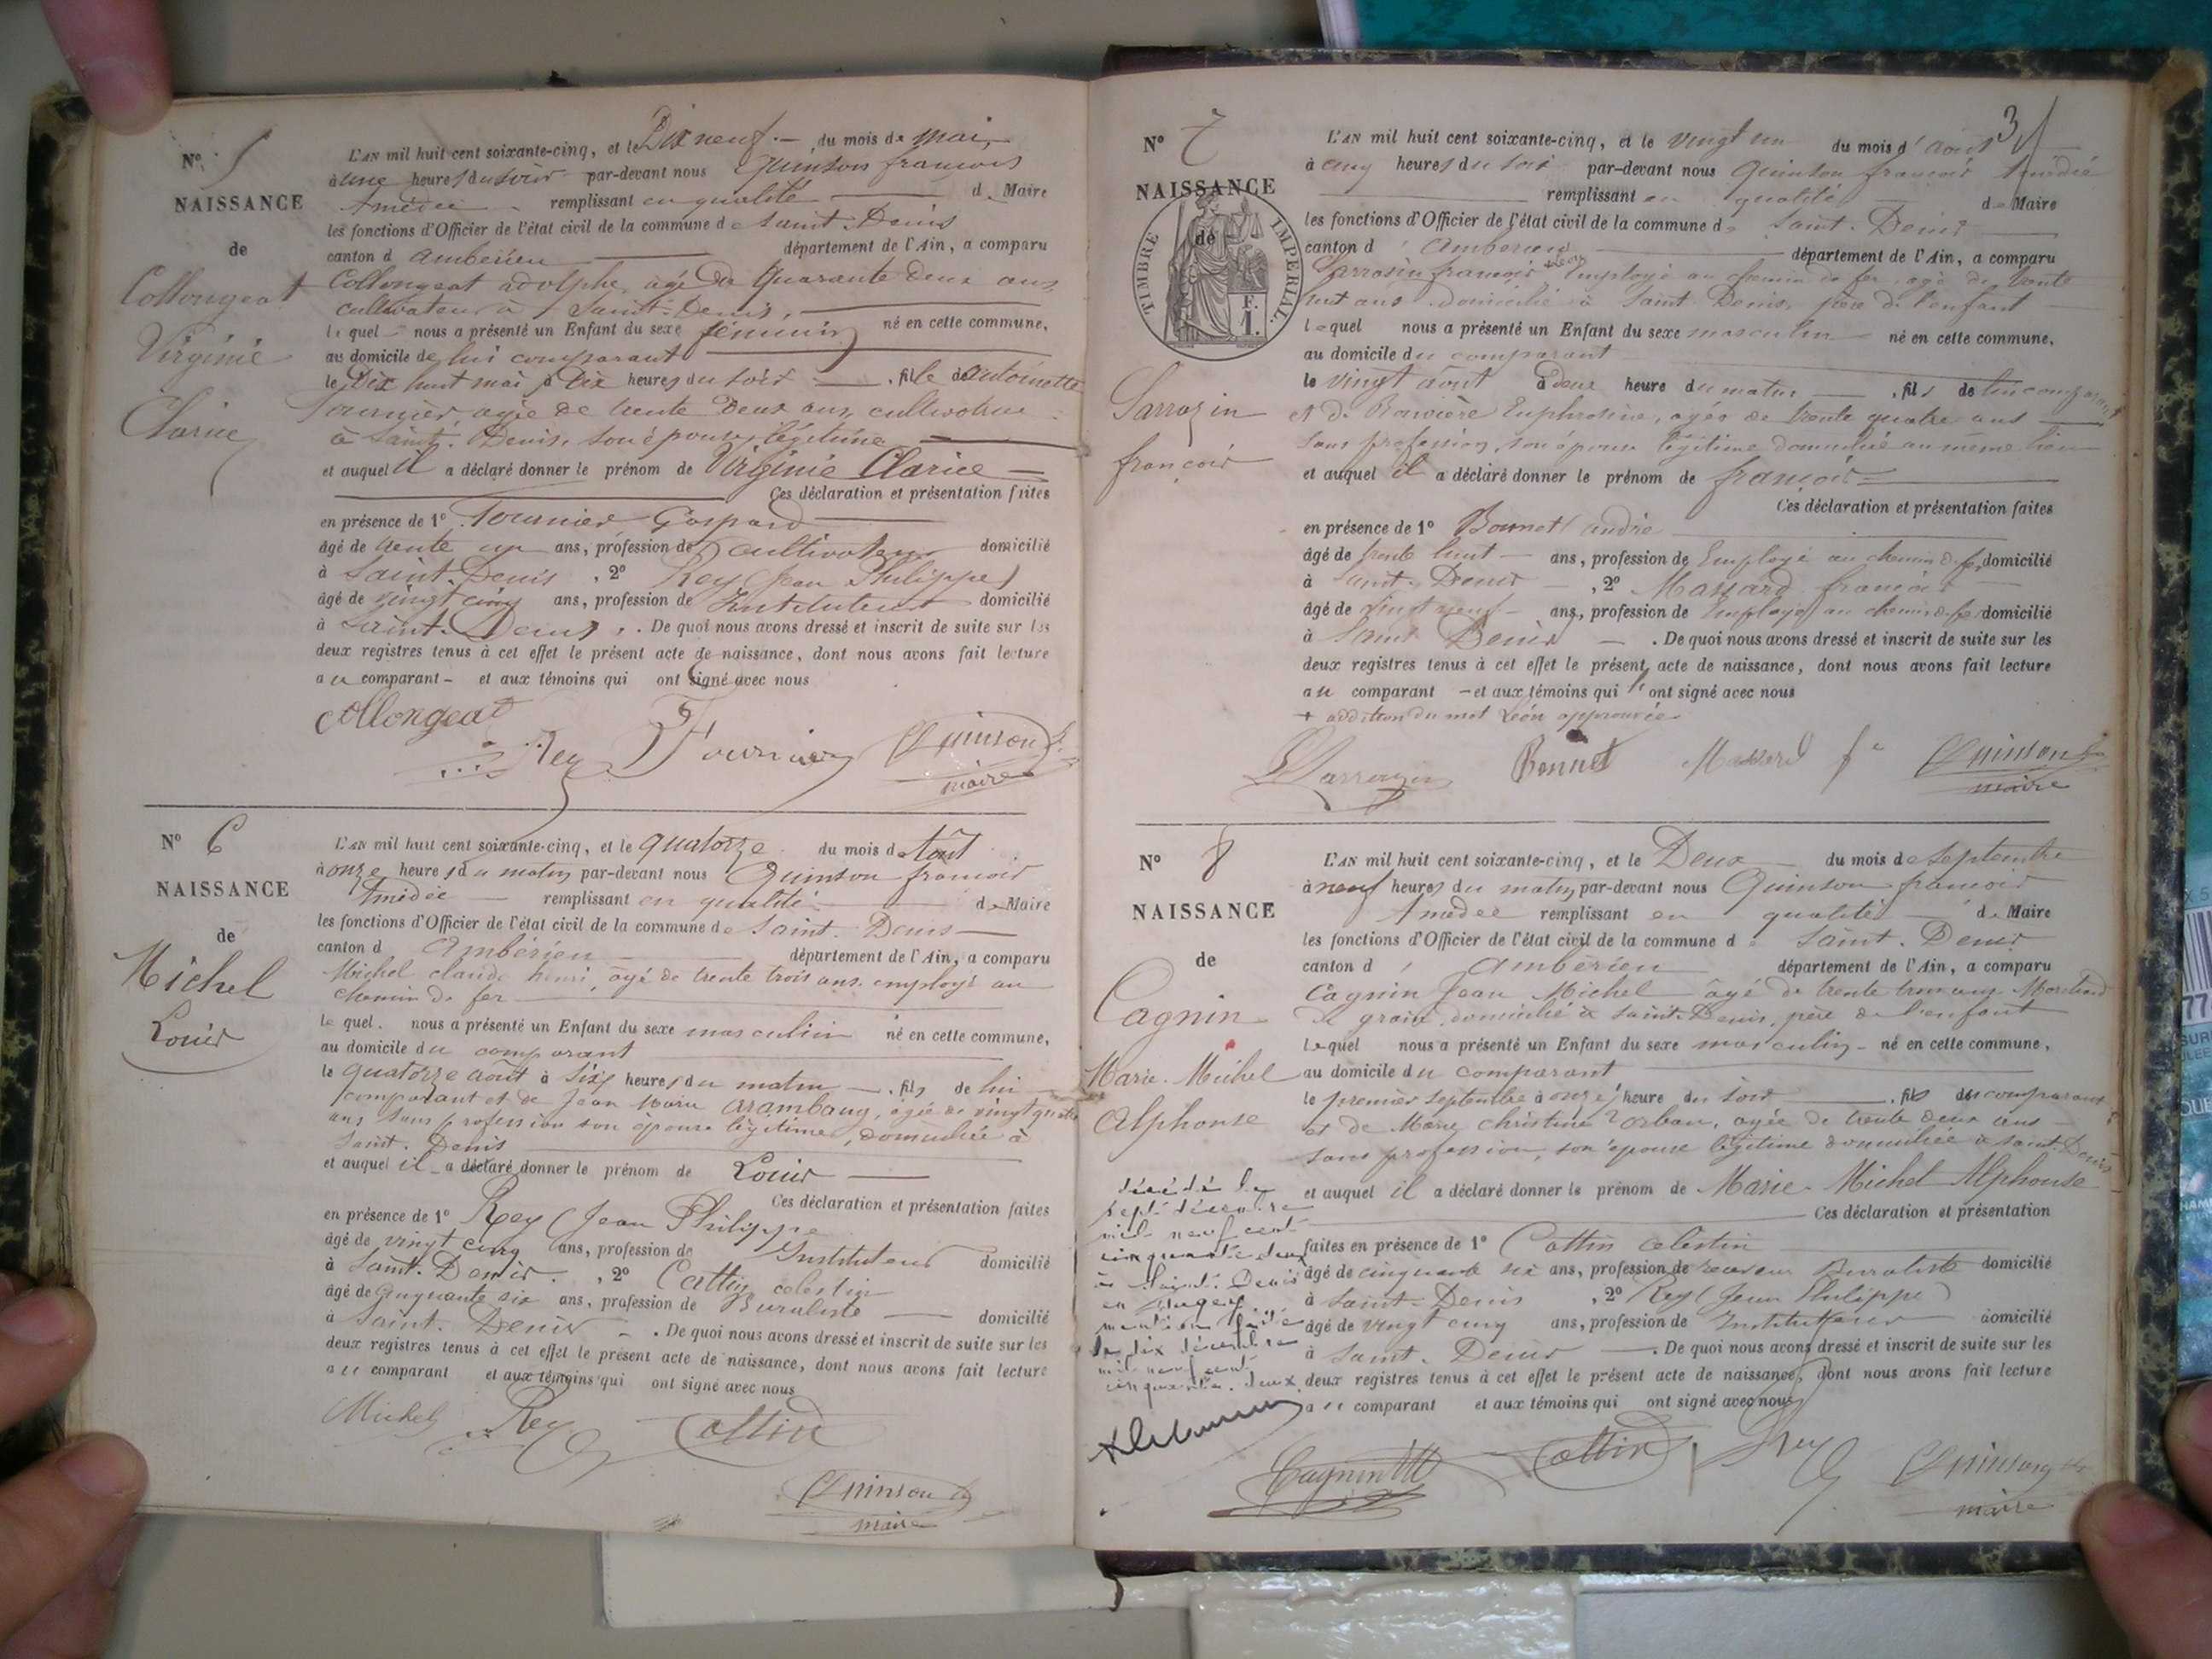 N° 5
NAISSANCE
de
Collongeat
Virginie
Clarice
L'AN mil huit cent soixante-cinq, et le Dix neuf du mois de mai
à une heures du soir par-devant nous Quinson francois
Amédée remplissant en qualité de Maire
les fonctions d'Officier de l'état civil de la commune de Saint-Denis
canton d'Ambérieu département de l'Ain, a comparu
Collongeat adolphe, agé de Quarante deux ans,
cultivateur à Saint-Denis,
lequel nous a présenté un Enfant du sexe féminin né en cette commune,
au domicile de lui comparant
le Dix huit mai à Dix heures du soir, fille de antoinette
Tournier agée de trente Deux ans, cultivatrice
à Saint-Denis, son épouse légitime
et auquel il a déclaré donner le prénom de Virginie Clarice
Ces déclaration et présentation faites
en présence de 1° Tournier Gaspard
âgé de trente un ans, profession de cultivateur domicilié
à Saint-Denis, 2° Rey (Jean Philippe)
âgé de vingt cinq ans, profession de Instituteur domicilié
à Saint-Denis. De quoi nous avons dressé et inscrit de suite sur les
deux registres tenus à cet effet le présent acte de naissance, dont nous avons fait lecture
au comparant et aux témoins qui ont signé avec nous
Collongeat
Rey Fournier Quinson
maire
N° 6
NAISSANCE
de
Michel
Louis
L'AN mil huit cent soixante-cinq, et le quatorze du mois d'Août
à onze heures du matin par-devant nous Quinson francois
Amédée remplissant en qualité de Maire
les fonctions d'Officier de l'état civil de la commune de Saint-Denis
canton d Ambérieu département de l'Ain, a comparu
Michel claude henri, âgé de trente trois ans employé au
chemin de fer
lequel nous a présenté un Enfant du sexe masculin né en cette commune,
au domicile du comparant
le quatorze août à six heures du matin, fils de lui
comparant et de Jean Marie Arambourg, agée de vingt quatre
ans sans profession son épouse légitime, domiciliée à
Saint-Denis
et auquel il a déclaré donner le prénom de Louis
Ces déclaration et présentation faites
en présence de 1° Rey (Jean Philippe
âgé de vingt cinq ans, profession de Instituteur domicilié
à Saint-Denis, 2° Cottin celestin
âgé de cinquante six ans, profession de Buraliste domicilié
à Saint-Denis. De quoi nous avons dressé et inscrit de suite sur les
deux registres tenus à cet effet le présent acte de naissance, dont nous avons fait lecture
au comparant et aux témoins qui ont signé avec nous
Michel Rey Cottin
Quinson
maire
3
N° 7
NAISSANCE
de
TIMBRE IMPERIAL
F.
1.
Sarrazin
françois
L'AN mil huit cent soixante-cinq, et le vingt un du mois d'août
à cinq heures du soir par-devant nous Quinson françois Amédée
remplissant en qualité de Maire
les fonctions d'Officier de l'état civil de la commune de Saint-Denis
canton d'Ambérieu département de l'Ain, a comparu
Sarrasin françois Léon Employé au chemin de fer, agé de trente
huit ans domicilié à Saint-Denis, père de l'enfant
lequel nous a présenté un Enfant du sexe masculin né en cette commune,
au domicile du comparant
le vingt août à deux heure du matin, fils de lui comparant
et de Euphrosine, agée de trente quatre ans
sans profession, son épouse légitime domicilié au même lieu
et auquel il a déclaré donner le prénom de françois
Ces déclaration et présentation faites
en présence de 1° Bonnet andré
âgé de trente huit ans, profession de Employé au chemin de fer domicilié
à Saint-Denis, 2° Massard francois
âgé de vingt neuf ans, profession de Employé au chemin de fer domicilié
à Saint Denis. De quoi nous avons dressé et inscrit de suite sur les
deux registres tenus à cet effet le présent acte de naissance, dont nous avons fait lecture
au comparant et aux témoins qui ont signé avec nous
+ addition du mot Léon approuvée
L Sarrazin Bonnet Massard fs Quinson
maire
N° 8
NAISSANCE
de
Cagnin
Marie-Michel
Alphonse
décédé le
sept décembre
mil neuf cent
cinquante deux
à Saint-Denis
en Bugey
mention faite
le dix décembre
mil neuf cent
cinquante-deux
L'AN mil huit cent soixante-cinq, et le Deux du mois de Septembre
à neuf heures du matin par-devant nous Quinson francois
Amedée remplissant en qualité de Maire
les fonctions d'Officier de l'état civil de la commune de Saint-Denis
canton d'Ambérieu département de l'Ain, a comparu
Cagnin Jean Michel âgé de trente trois ans Marchand
de grains, domicilié à Saint-Denis, père de l'enfant
lequel nous a présenté un Enfant du sexe masculin né en cette commune,
au domicile du comparant
le premier septembre à onze heure du soir, fils du comparant
et de Marie christine Vorbau, agée de trente deux ans
sans profession, son épouse légitime domiciliée à Saint-Denis
et auquel il a déclaré donner le prénom de Marie Michel Alphonse
Ces déclaration et présentation
faites en présence de 1° Cottin celestin
âgé de cinquante six ans, profession de receveur Buraliste domicilié
à Saint-Denis, 2° Rey (Jean Philippe)
âgé de vingt cinq ans, profession de Instituteur domicilié
à Saint-Denis. De quoi nous avons dressé et inscrit de suite sur les
deux registres tenus à cet effet le présent acte de naissance, dont nous avons fait lecture
au comparant et aux témoins qui ont signé avec nous
Cagnin Cottin Rey Quinson
maire